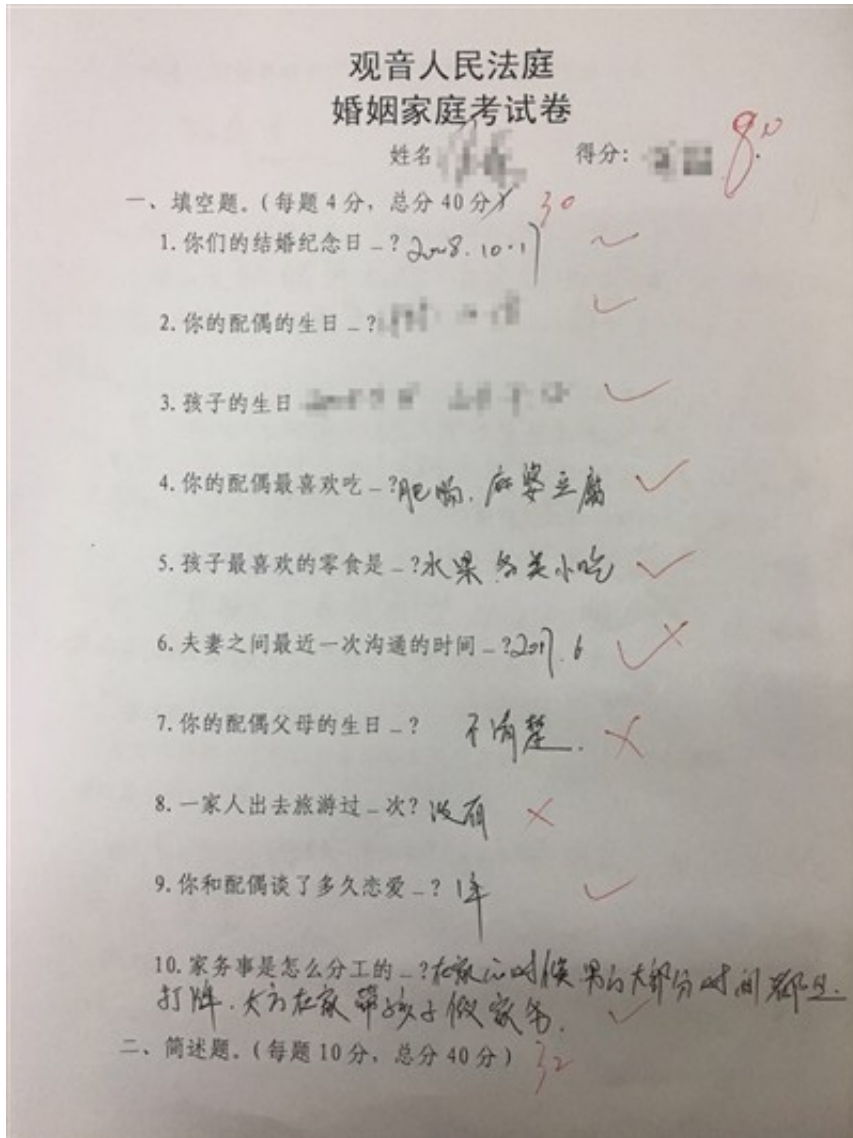 观音人民法庭
婚姻家庭考试卷
姓名 得分: 80.
一、填空题。(每题4分,总分40分) 30
1.你们的结婚纪念日_?2008.10.17
2.你的配偶的生日_?
3.孩子的生日
4.你的配偶最喜欢吃_?肥肠.麻婆豆腐
5.孩子最喜欢的零食是_?水果 各类小吃
6.夫妻之间最近一次沟通的时间_?2017.6
7.你的配偶父母的生日_? 不清楚.
8.一家人出去旅游过_次?没有
9.你和配偶谈了多久恋爱_?1年
10.家务事是怎么分工的_?在家的时候男的大部分时间都是
打牌.女方在家带孩子做家务.
二、简述题。(每题10分,总分40分) 32